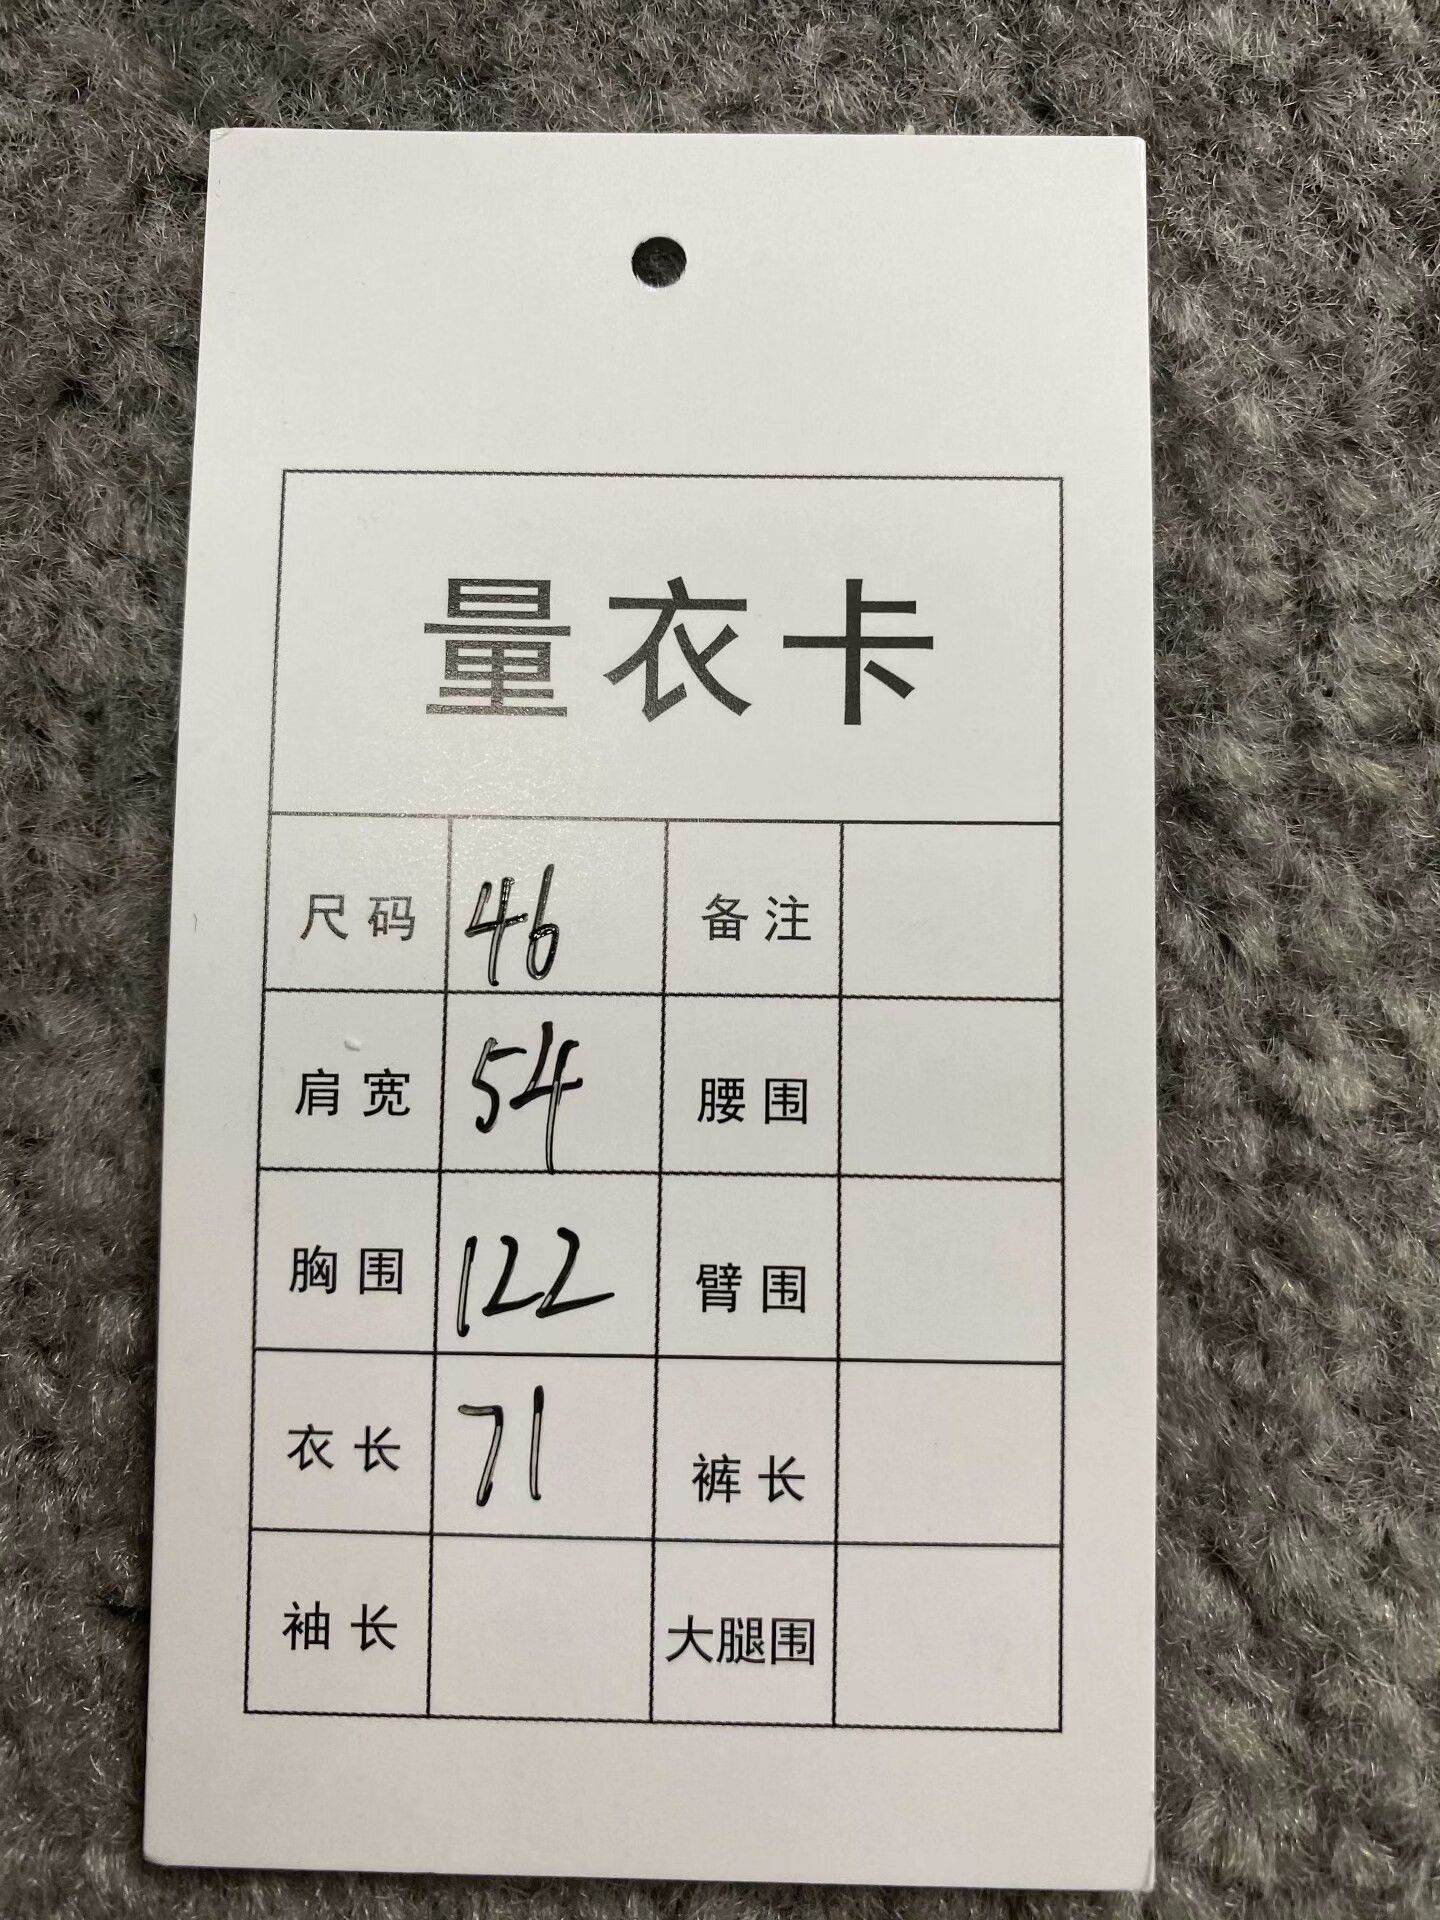 量衣卡
尺码 46 备注
肩宽 54 腰围
胸围 122 臂围
衣长 71 裤长
袖长 大腿围